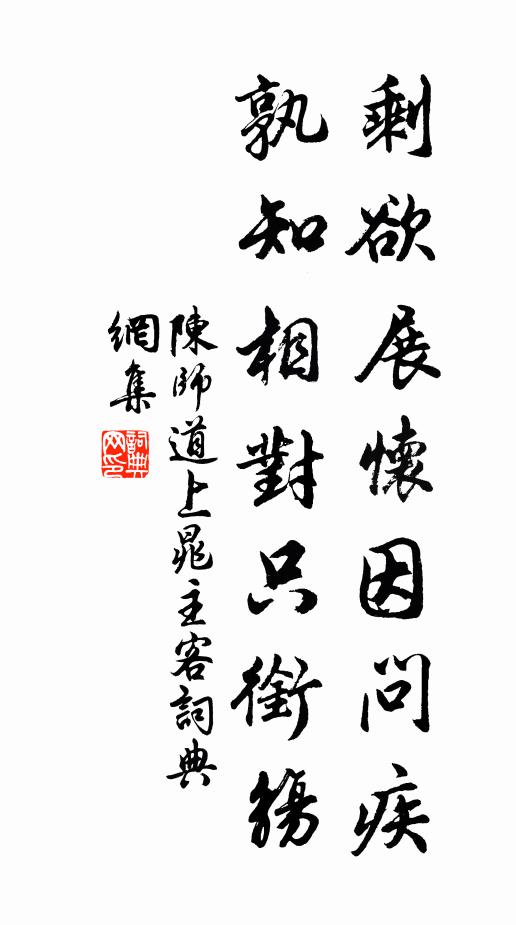 剩欲展懷因問疾
孰知相對只銜觴
陳師道上晁主客詞典
網集
詞典網印